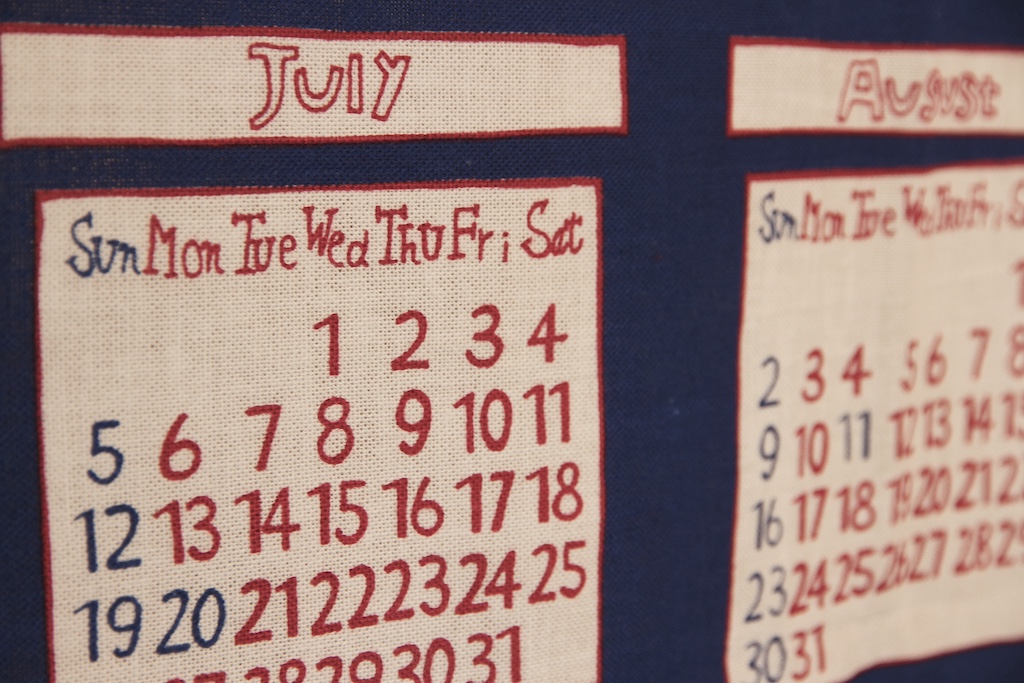 July
Sun Mon Tue Wed Thu Fri Sat
1 2 3 4
5 6 7 8 9 10 11
12 13 14 15 16 17 18
19 20 21 22 23 24 25
27 28 29 30 31
August
Sun Mon Tue Wed Thu Fri S
1
2 3 4 5 6 7 8
9 10 11 12 13 14 15
16 17 18 19 20 21 22
23 24 25 26 27 28 29
30 31